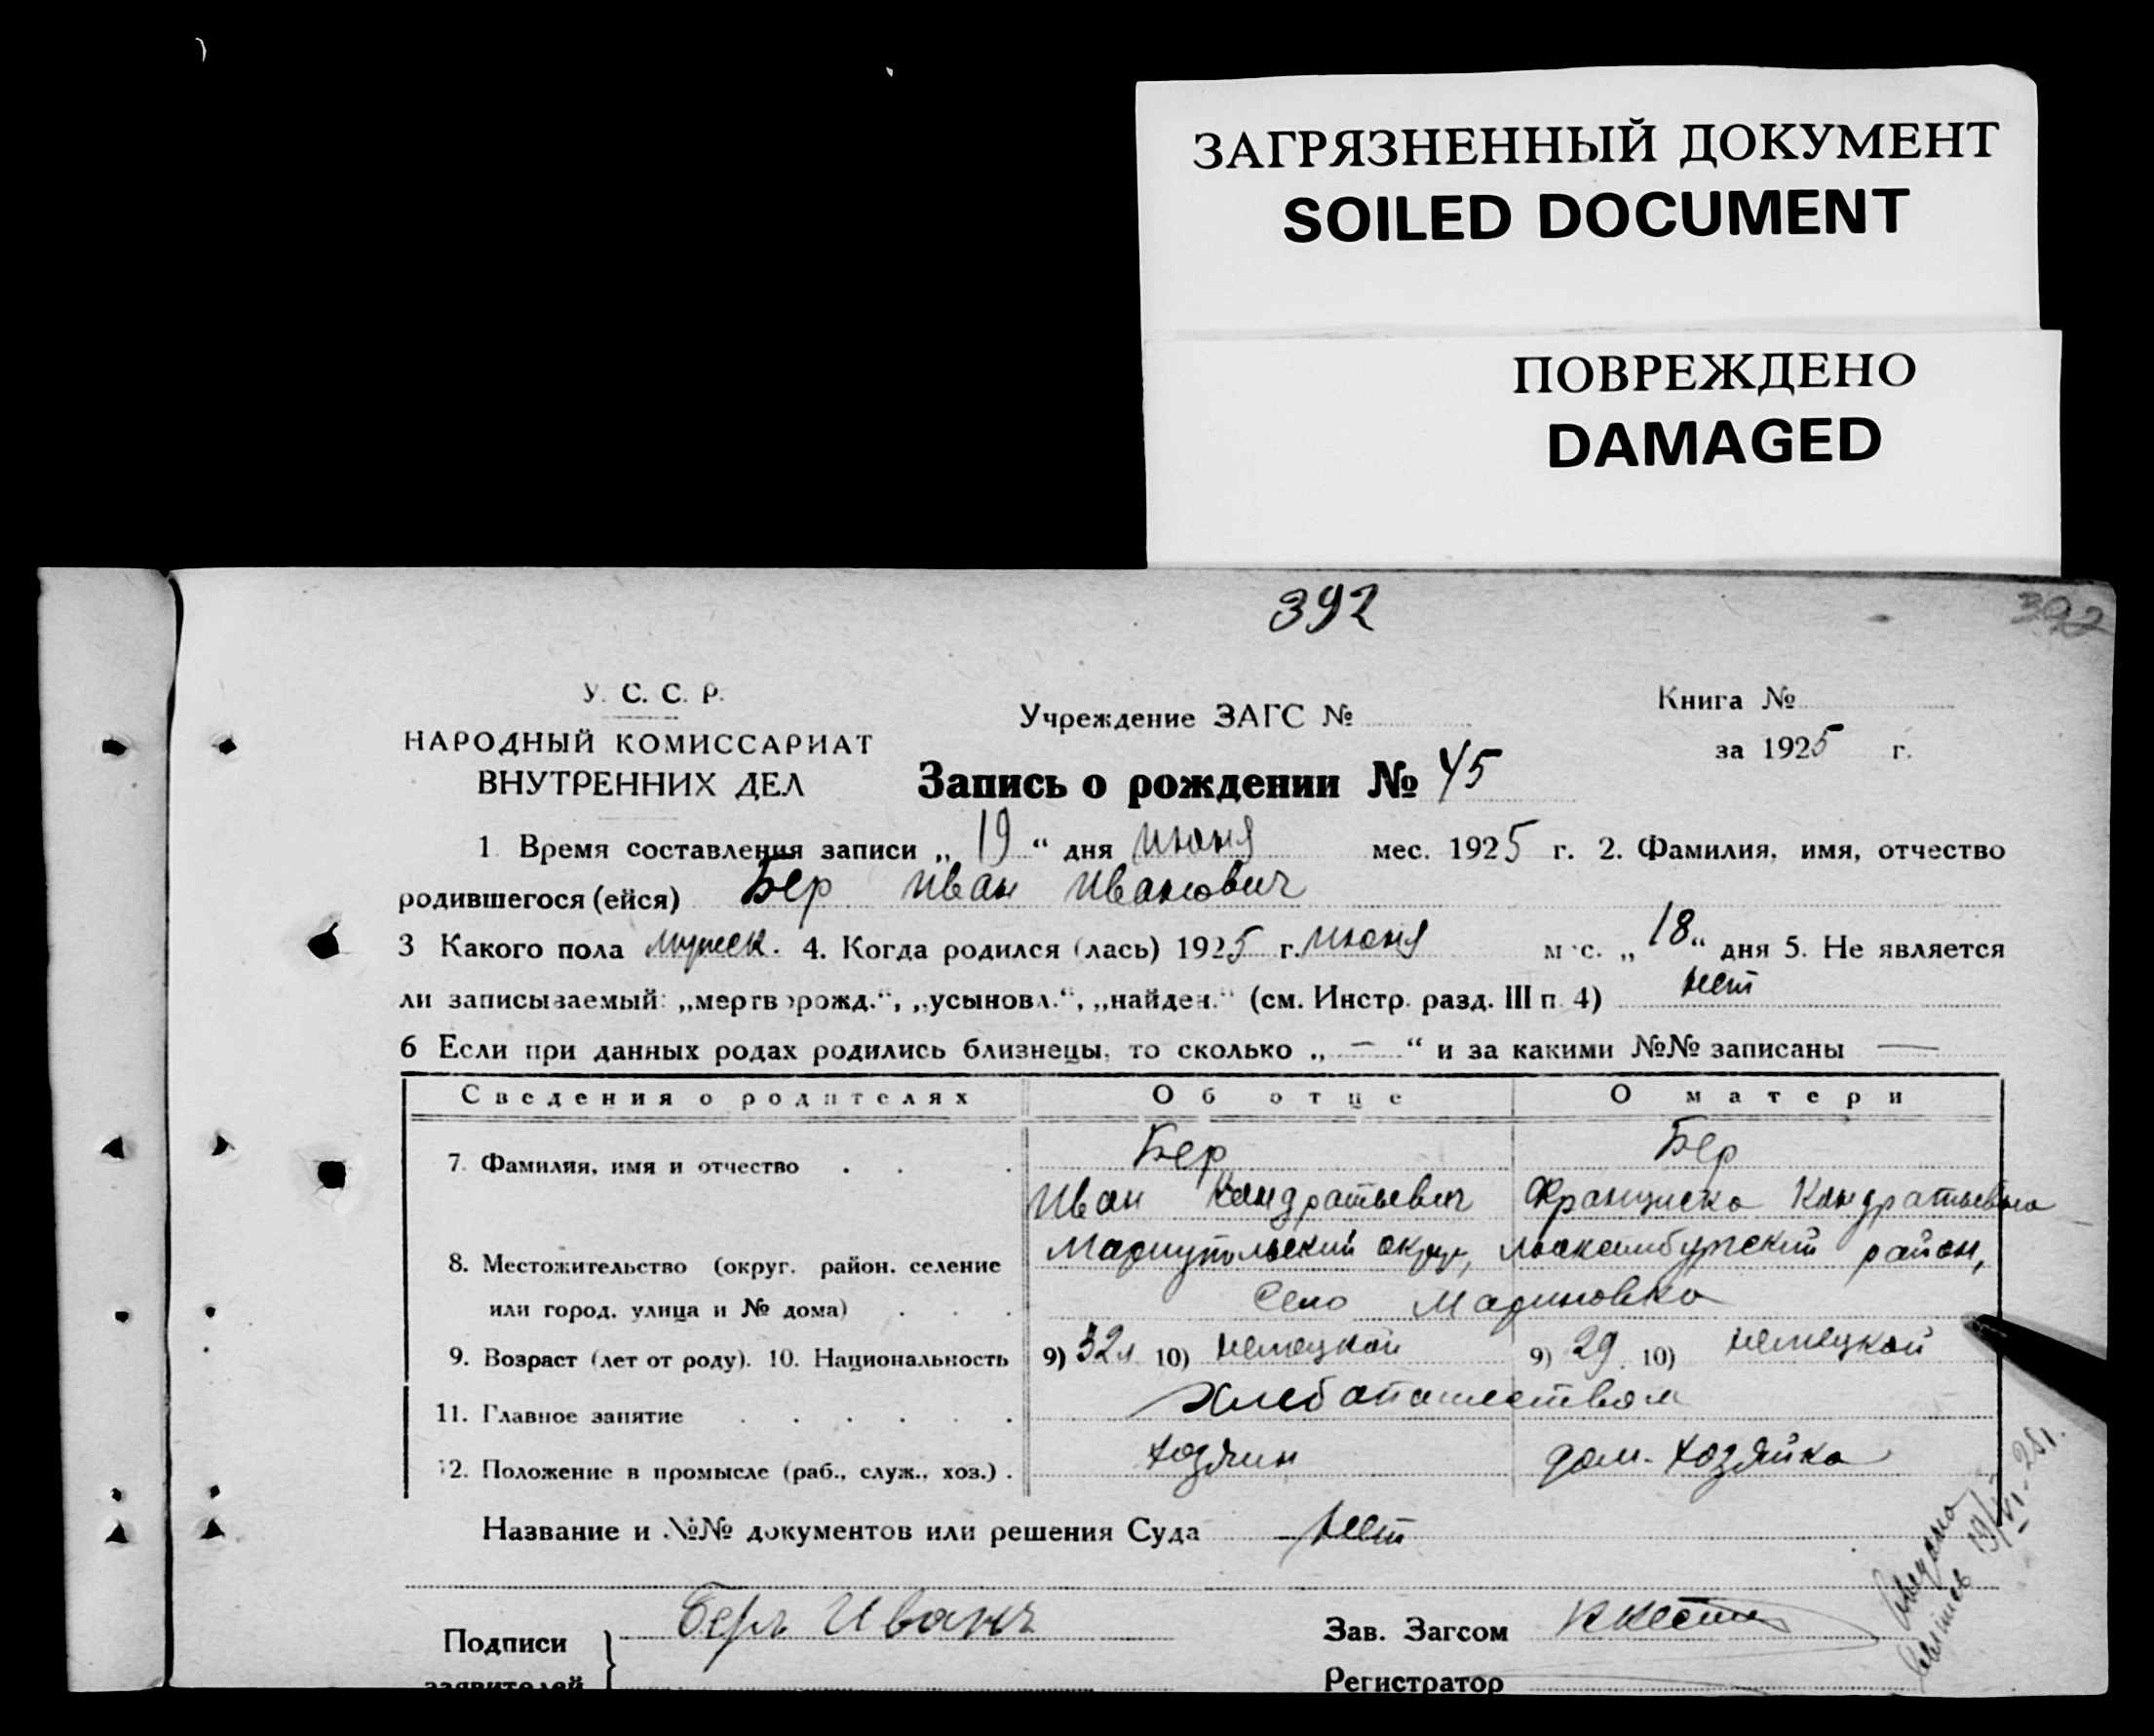 ЗАГРЯЗНЕННЫЙ ДОКУМЕНТ
SOILED DOCUMENT
ПОВРЕЖДЕНО
DAMAGED
392
392
У. С. С. Р.
НАРОДНЫЙ КОМИССАРИАТ
ВНУТРЕННИХ ДЕЛ
Учреждение ЗАГС №
Книга №
за 1925 г.
Запись о рождении № 45
1 Время составления записи „ 19 “ дня июня мес. 1925 г. 2. Фамилия, имя, отчество
родившегося (ейся) Бер Иван Иванович
3 Какого пола мужск. 4. Когда родился (лась) 1925 г. июня мес. „ 18 “ дня 5. Не является
ли записываемый: „мертворожд.“, „усыновл.“, „найден.“ (см. Инстр. разд. III п 4) нет
6 Если при данных родах родились близнецы, то сколько „ — “ и за какими №№ записаны —
Сведения о родителях Об отце О матери
7. Фамилия, имя и отчество . . . Бер Бер
Иван Кондратьевич Франциска Кондратьевна
8. Местожительство (округ, район, селение Мариупольский округ, Люксембургский район,
или город, улица и № дома) . . . Село Мариновка
9. Возраст (лет от роду). 10. Национальность 9) 32 л 10) немецкой 9) 29 10) немецкой
11. Главное занятие . . . . . . Хлебопашеством
12. Положение в промысле (раб., служ., хоз.) . хозяин дом. хозяйка
Название и №№ документов или решения Суда нет
Подписи
заявителей
Беръ Иванъ
Зав. Загсом
Регистратор
19/VI-25 г.